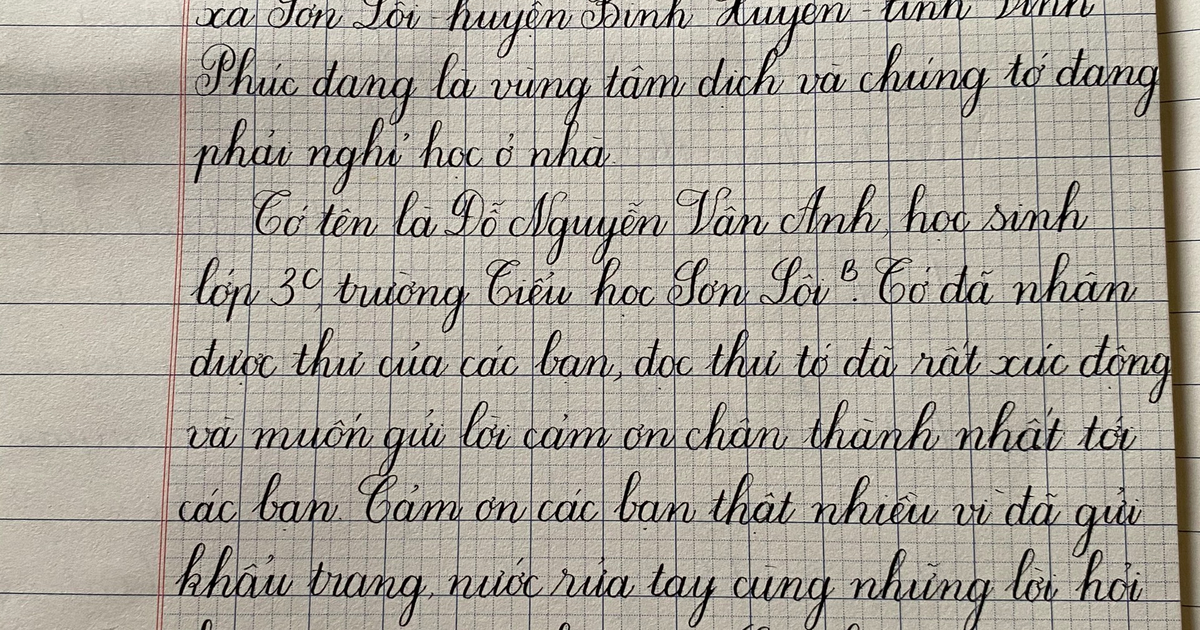 xã Sơn Lôi - huyện Bình Xuyên - tỉnh Vĩnh
Phúc đang là vùng tâm dịch và chúng tớ đang
phải nghỉ học ở nhà.
Tớ tên là Đỗ Nguyễn Vân Anh, học sinh
lớp 3C, trường Tiểu học Sơn Lôi B. Tớ đã nhận
được thư của các bạn, đọc thư tớ đã rất xúc động
và muốn gửi lời cảm ơn chân thành nhất tới
các bạn. Cảm ơn các bạn thật nhiều vì đã gửi
khẩu trang, nước rửa tay cùng những lời hỏi